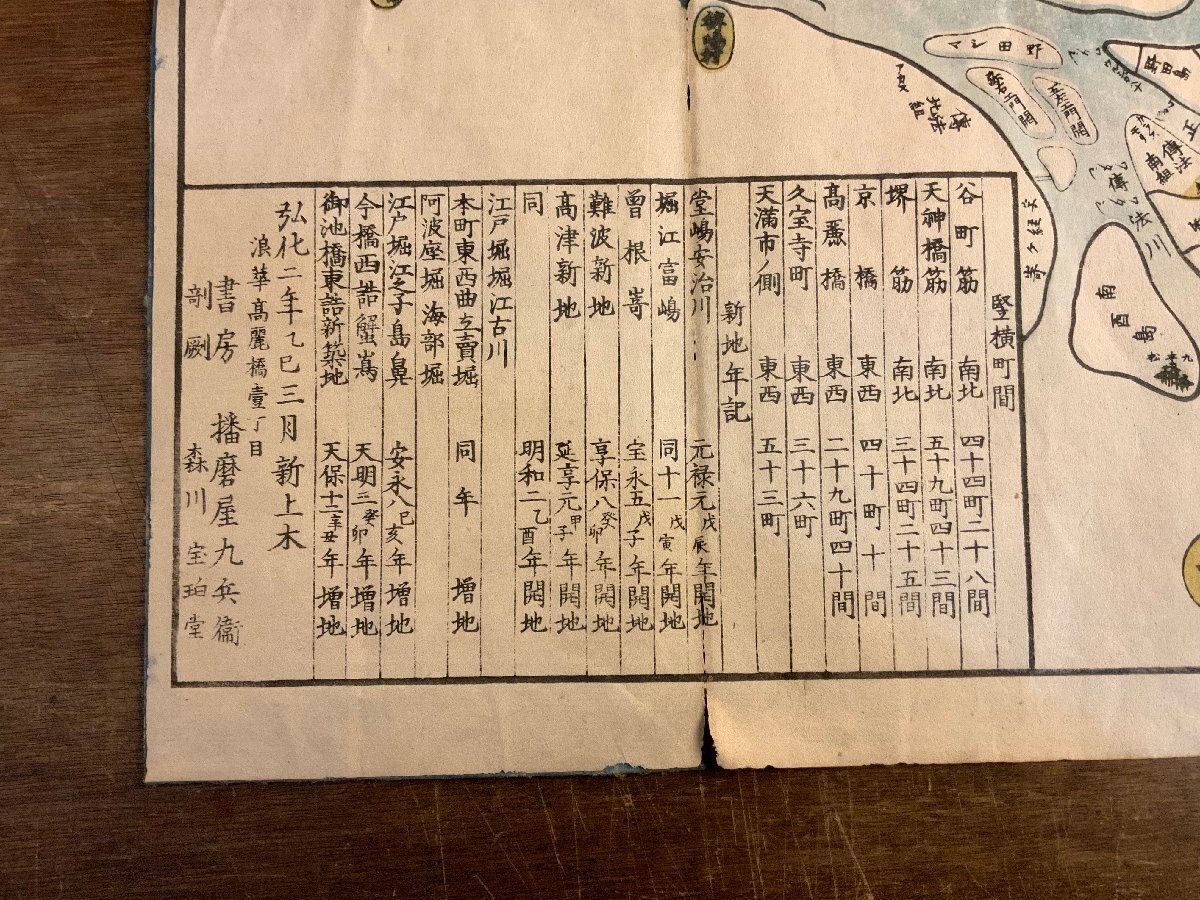 野田シマ
野田島
五左エ門開
傳法
北組
傳法
南組
正
傳法川
安治ケ
南酉島
竪横町間
谷町筋 南北 四十四町二十八間
天神橋筋 南北 五十九町四十三間
堺筋 南北 三十四町二十五間
京橋 東西 四十町十間
高麗橋 東西 二十九町四十間
久宝寺町 東西 三十六町
天満市ノ側 東西 五十三町
新地年記
堂嶋安治川 元禄元戊辰年開地
堀江富嶋 同十一戊寅年開地
曽根嵜 宝永五戊子年開地
難波新地 享保八癸卯年開地
高津新地 延享元甲子年開地
同 明和二乙酉年開地
江戸堀堀江古川
本町東西曲立賣堀 同年増地
阿波座堀海部堀
江戸堀江之子島鼻 安永八己亥年増地
今橋西詰蟹嶌 天明三癸卯年増地
御池橋東詰新築地 天保十二辛丑年増地
弘化二年乙巳三月新上木
浪華高麗橋壹丁目
書房 播磨屋九兵衞
剞劂 森川宝珀堂